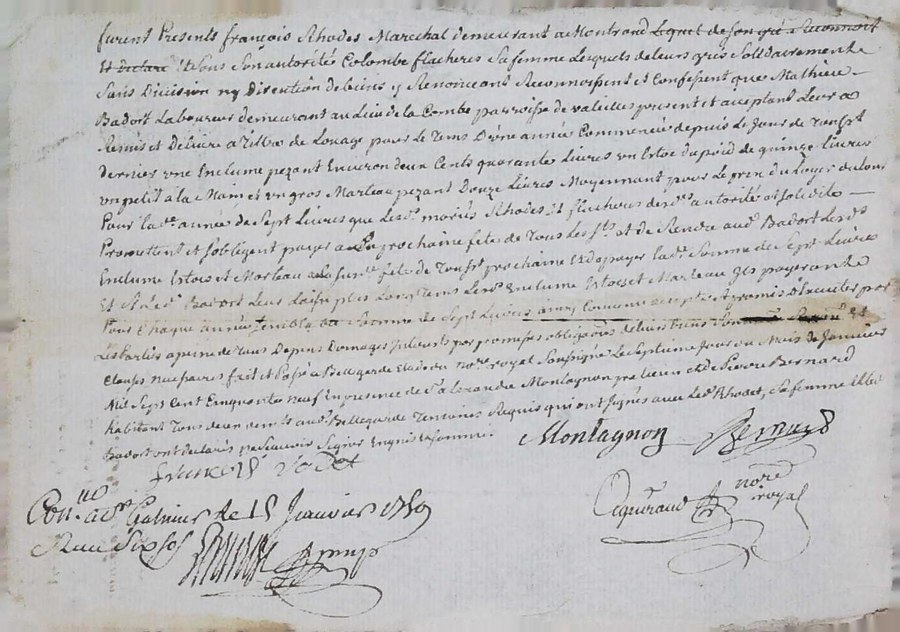 furent Presents françois Rhodes Marechal demeurant a Montrond Lequel de son gré a Reconnoit
Et declaré Et sous son autorité Colombe flacheres sa femme Lesquels de leurs grés Solidairement
Sans Division ny Direction de biens y Renonceant Reconnoissent et Confessent que Mathieu
Badort Laboureur demeurant au Lieu de la Combe parroisse de valeilles present et acceptant Leur a
Remis et Delivré a Tittre de Louage pour Le Tems D'une année Commencée depuis Le Jour de Tousst
dernier une Enclume pezant Environ deux Cents quarante Livres un Estoc du poid de quinze Livres
un petit à la Main et un gros Marteau pezant Douze Livres Moyennant pour Le prix du Loyer
Pour lad. année de Sept Livres que Lesd. mariés Rhodes et flacheres de lad. autorité et solidité
Promettent et s'obligent payer a La prochaine fête de Tous Les Sts et de Rendre aud. Badort Lesd.
Enclume Estoc et Marteau a La fête de Touss.t prochaine Et de payer lad. Somme de Sept Livres
Et si Led. Badort Leur Laisse plus Long Tems Lesd. Enclume Estoc et Marteau payeront
Pour Chaque année semblable Somme de Sept Livres ainsy Convenu accepté et promis D'Executer par
Les parties a peine de Tous Depens Domages Interets par promesses obligations de leurs biens
Clauses necessaires fait et Passé a Bellegarde Etude du not.re royal Soussigné Le Septieme Jour du Mois de Janvier
Mil Sept Cent Cinquante Neuf En presence de Montagnon praticien et de Pierre Bernard
habitant Tous deux aud. Bellegarde Temoins Requis qui ont signés avec Led. Rhodes, sa femme Et led.
Badort ont declarés ne scavoir signer Enquis et sommé.
Montagnon Bernard
francois rodet
not.re royal
Con.llé a St Galmier Le 15 Janvier 1759
Reçu Six sols